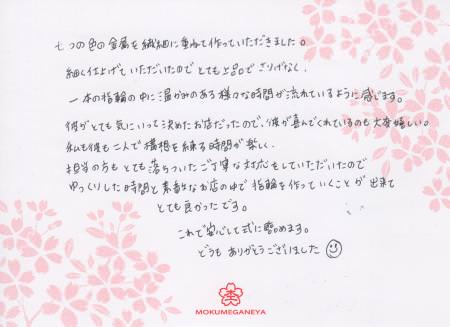 七つの色の金属を繊細に重ねて作っていただきました。
細く仕上げていただいたので とても上品で さりげなく、
一本の指輪の中に温かみのある様々な時間が流れているように感じます。
彼がとても気にいって決めたお店だったので、彼が喜んでくれているのも大変嬉しい。
私も彼も二人で構想を練る時間が楽しく
担当の方も とても落ちついたご丁寧な対応をしていただいたので
ゆっくりした時間と素敵なお店の中で指輪を作っていくことが出来て
とても良かったです。
これで安心して式に臨めます。
どうも ありがとうございました
MOKUMEGANEYA